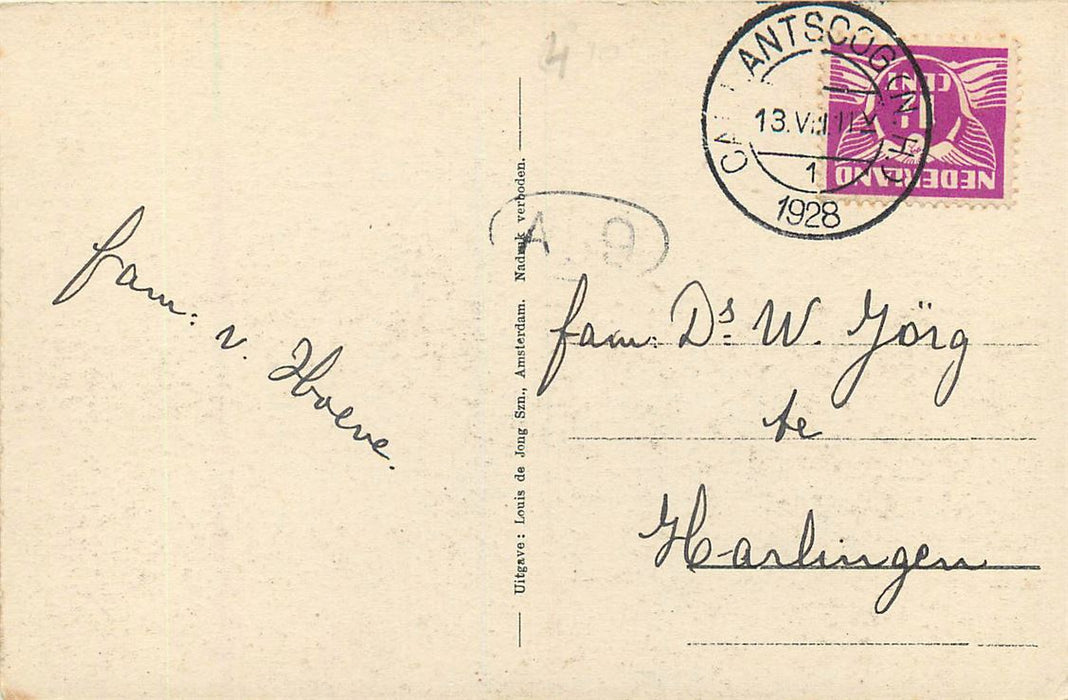 4
CALLANTSOOG (N.H.)
13.VIII
1
1928
1½
CENT
NEDERLAND
A.O
fam: v. Hoeve.
Uitgave: Louis de Jong Szn., Amsterdam. Nadruk verboden.
fam: Ds W. Jörg
te
Harlingen